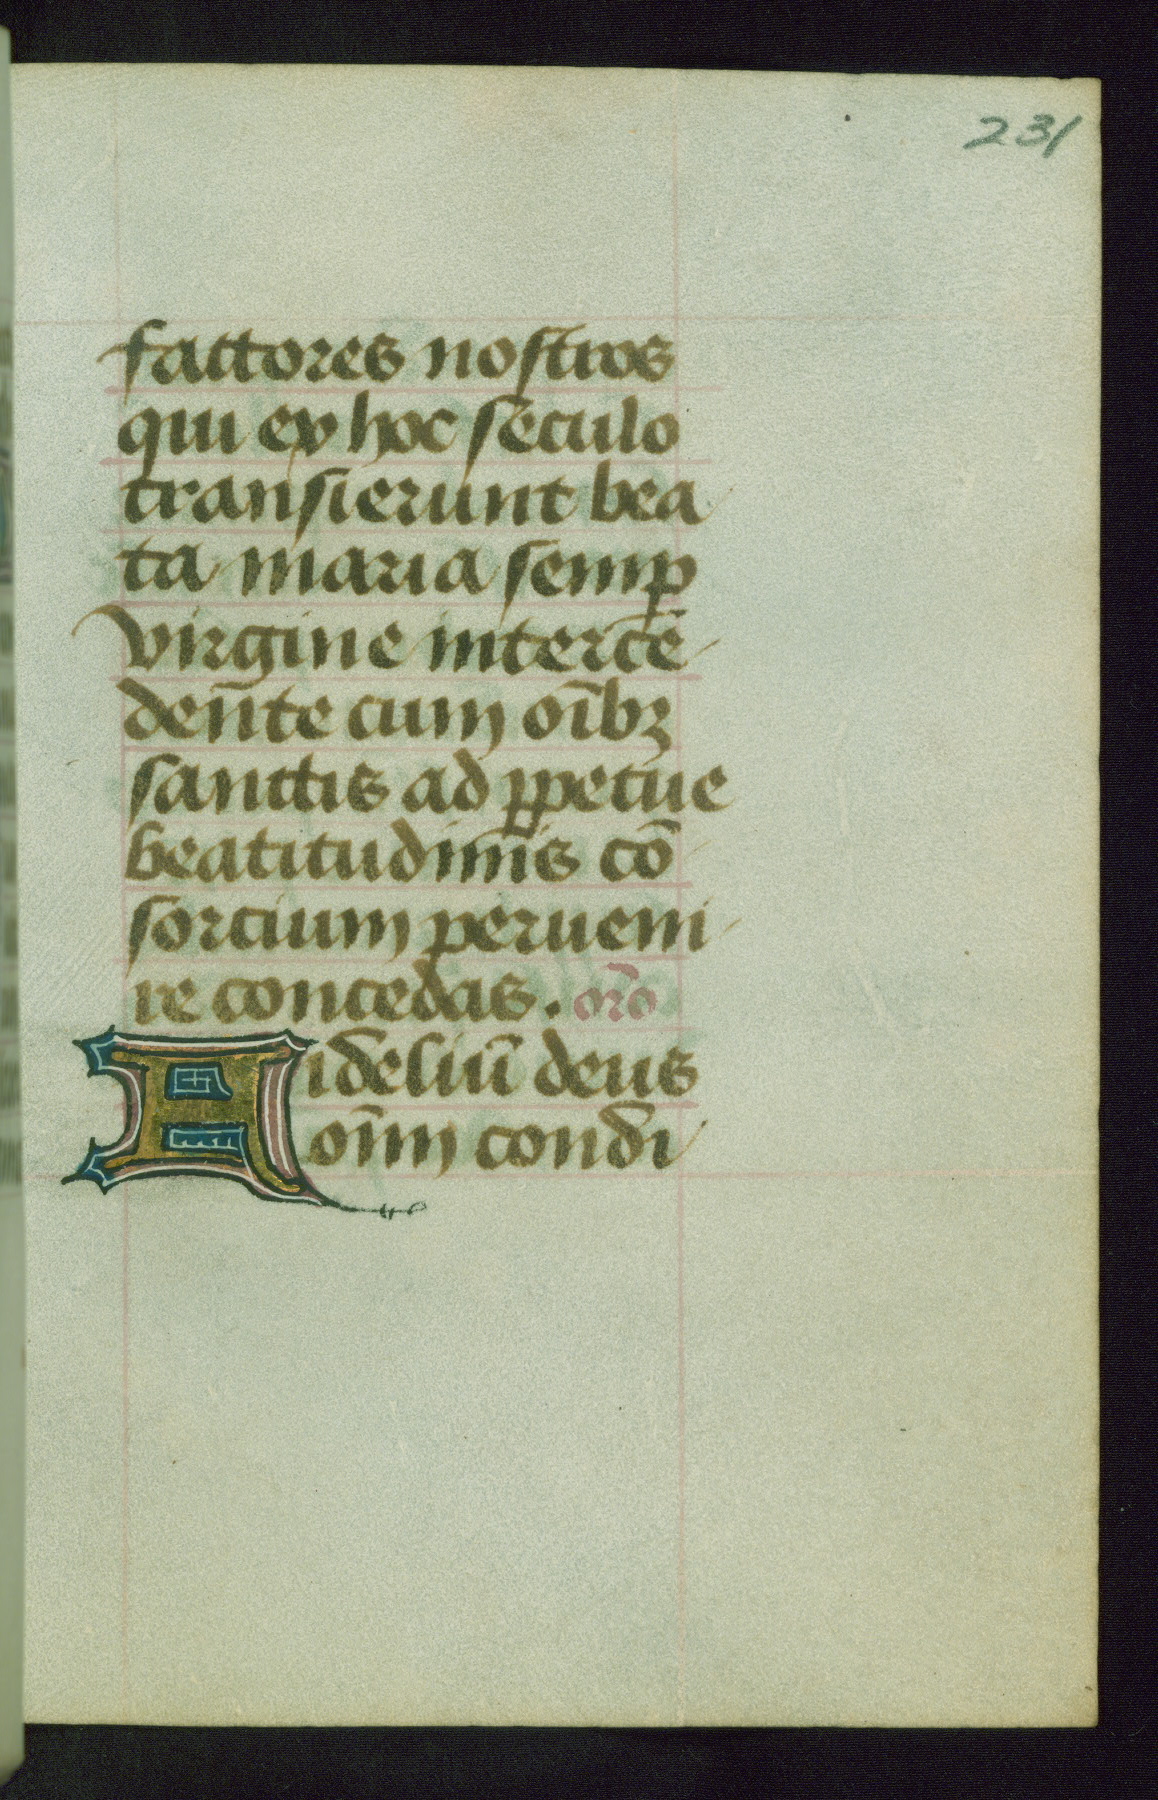 231
factores nostros
qui ex hoc seculo
transierunt bea
ta maria semꝑ
virgine intercē
den̄te cum oībꝫ
sanctis ad ꝑpetue
beatitudinis cō
sortium perueni
re concedas. or̄o
Fideliū deus
oīm condi